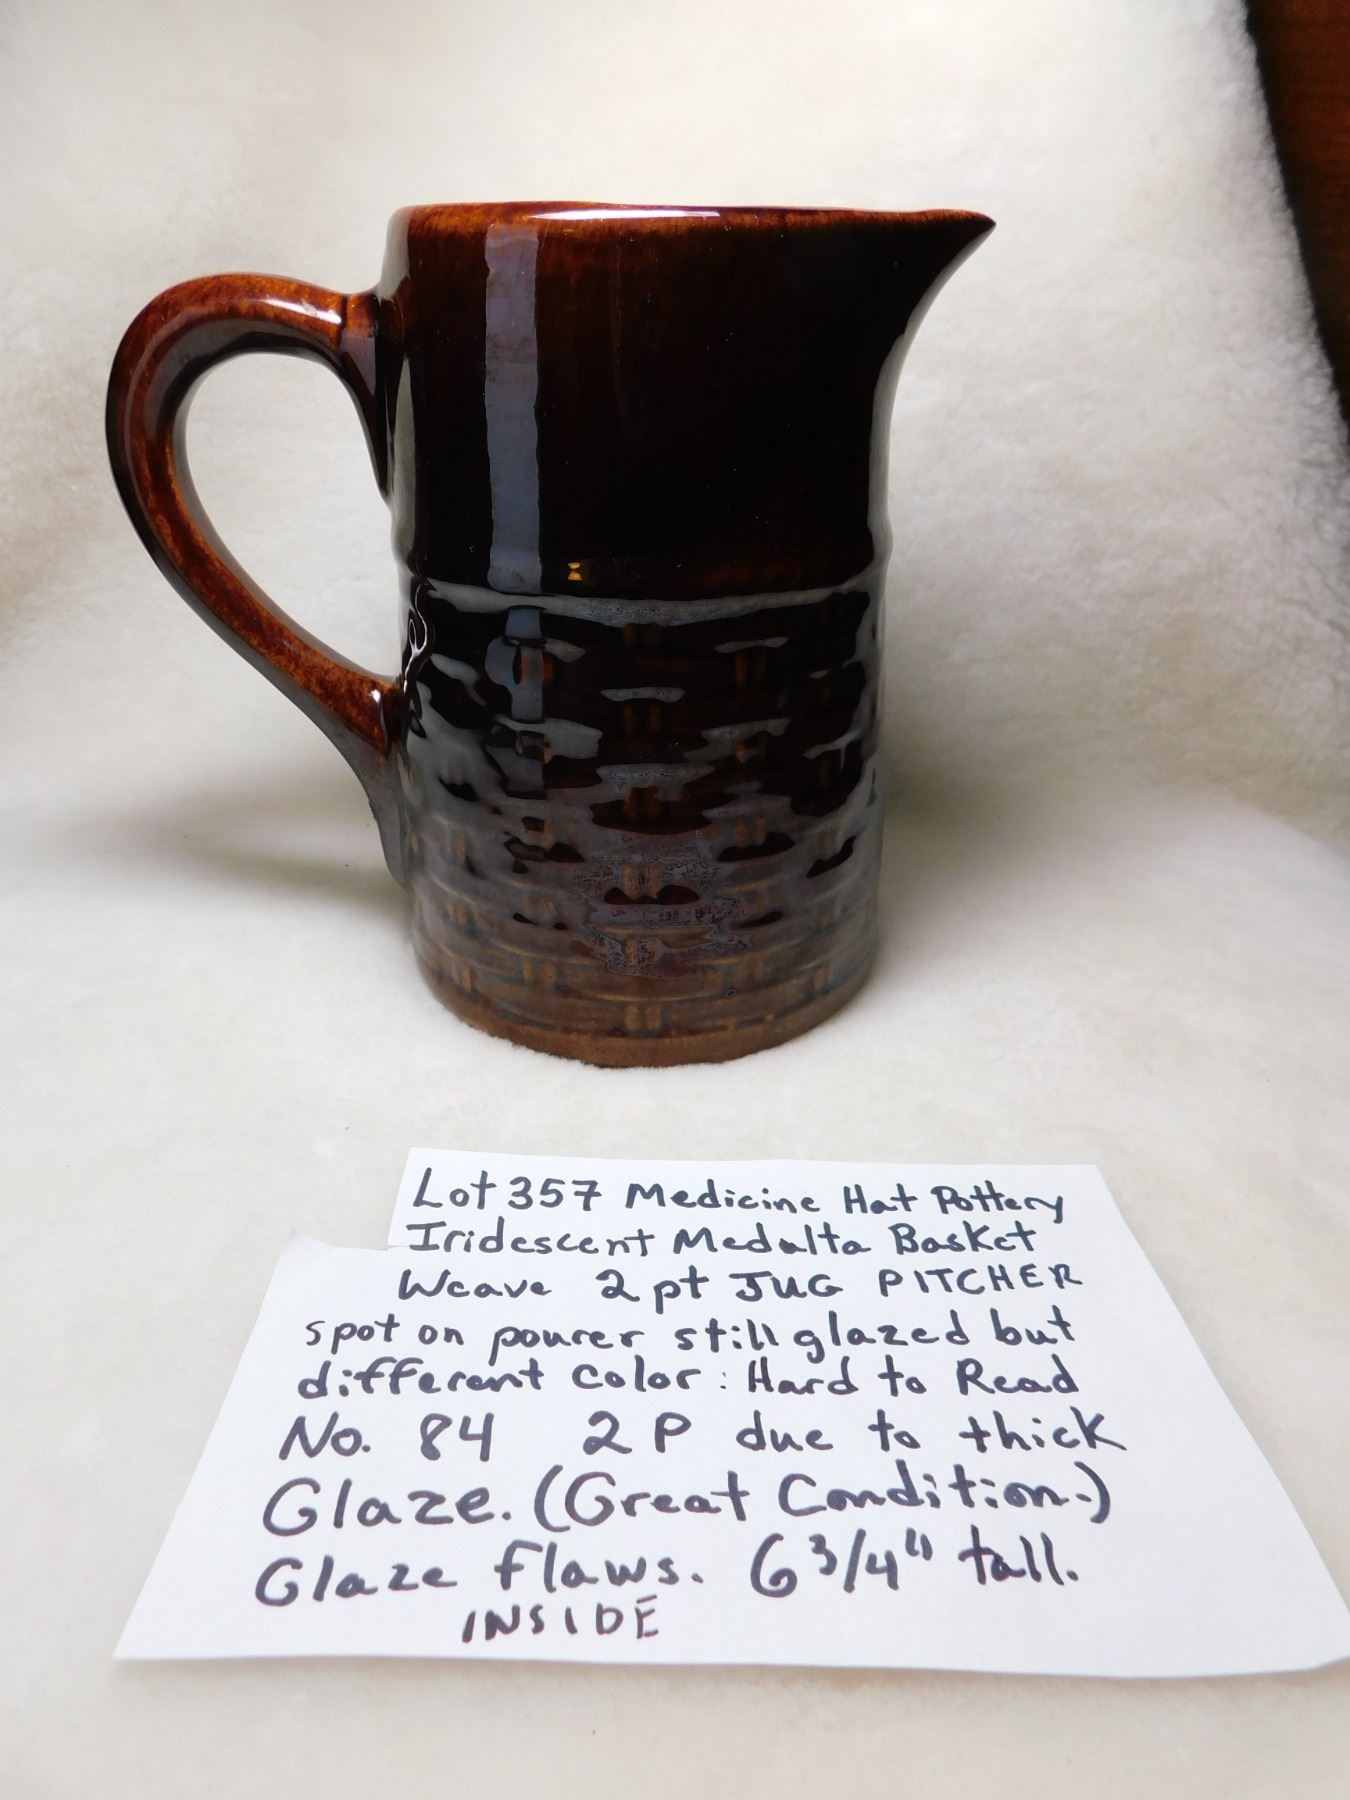 Lot 357 Medicine Hat Pottery
Iridescent Medalta Basket
Weave 2 pt JUG PITCHER
spot on pourer still glazed but
different color: Hard to Read
No. 84 2 P due to thick
Glaze. (Great Condition.)
Glaze flaws. 6 3/4" tall.
INSIDE